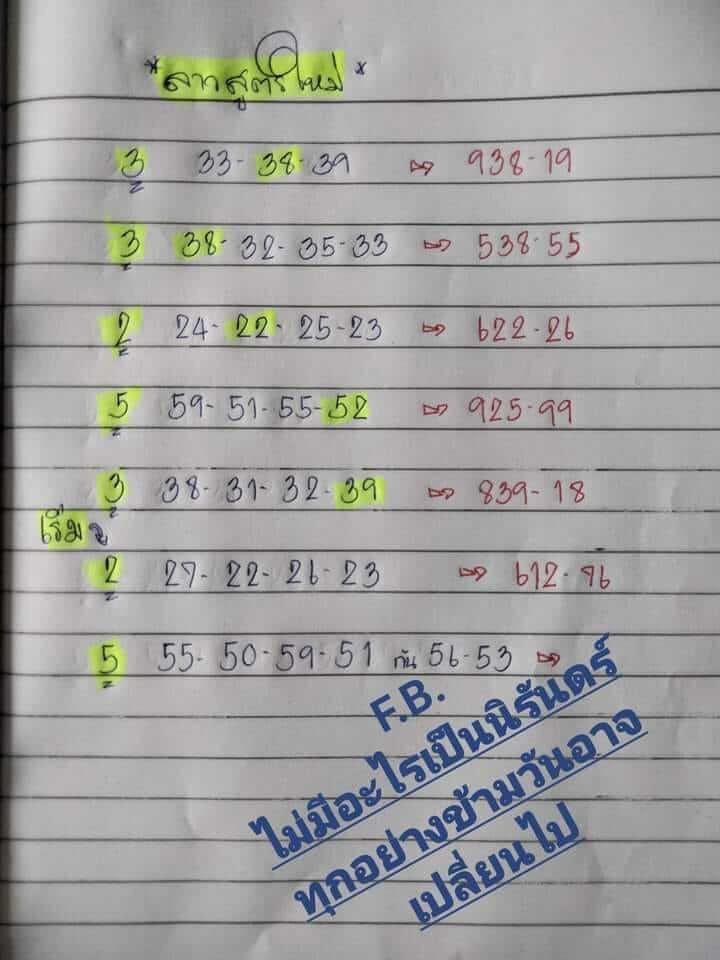 * ลาวสูตรใหม่ *
3 33-38-39 ⇨ 938-19
3 38-32-35-33 ⇨ 538-55
2 24-22-25-23 ⇨ 622-26
5 59-51-55-52 ⇨ 925-99
3 38-31-32-39 ⇨ 839-18
เริ่ม
2 27-22-26-23 ⇨ 612-96
5 55-50-59-51 กัน 56-53 ⇨
F.B.
ไม่มีอะไรเป็นนิรันดร์
ทุกอย่างข้ามวันอาจ
เปลี่ยนไป